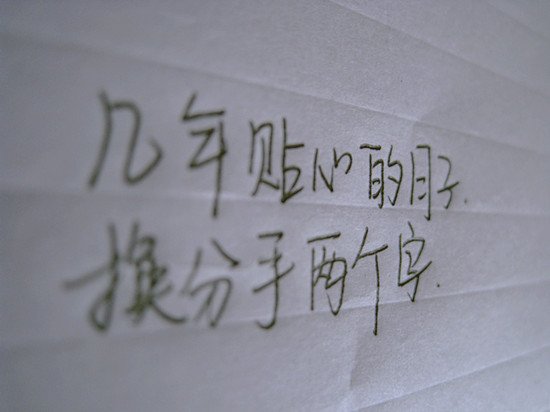 几年贴心的日子.
换分手两个字.